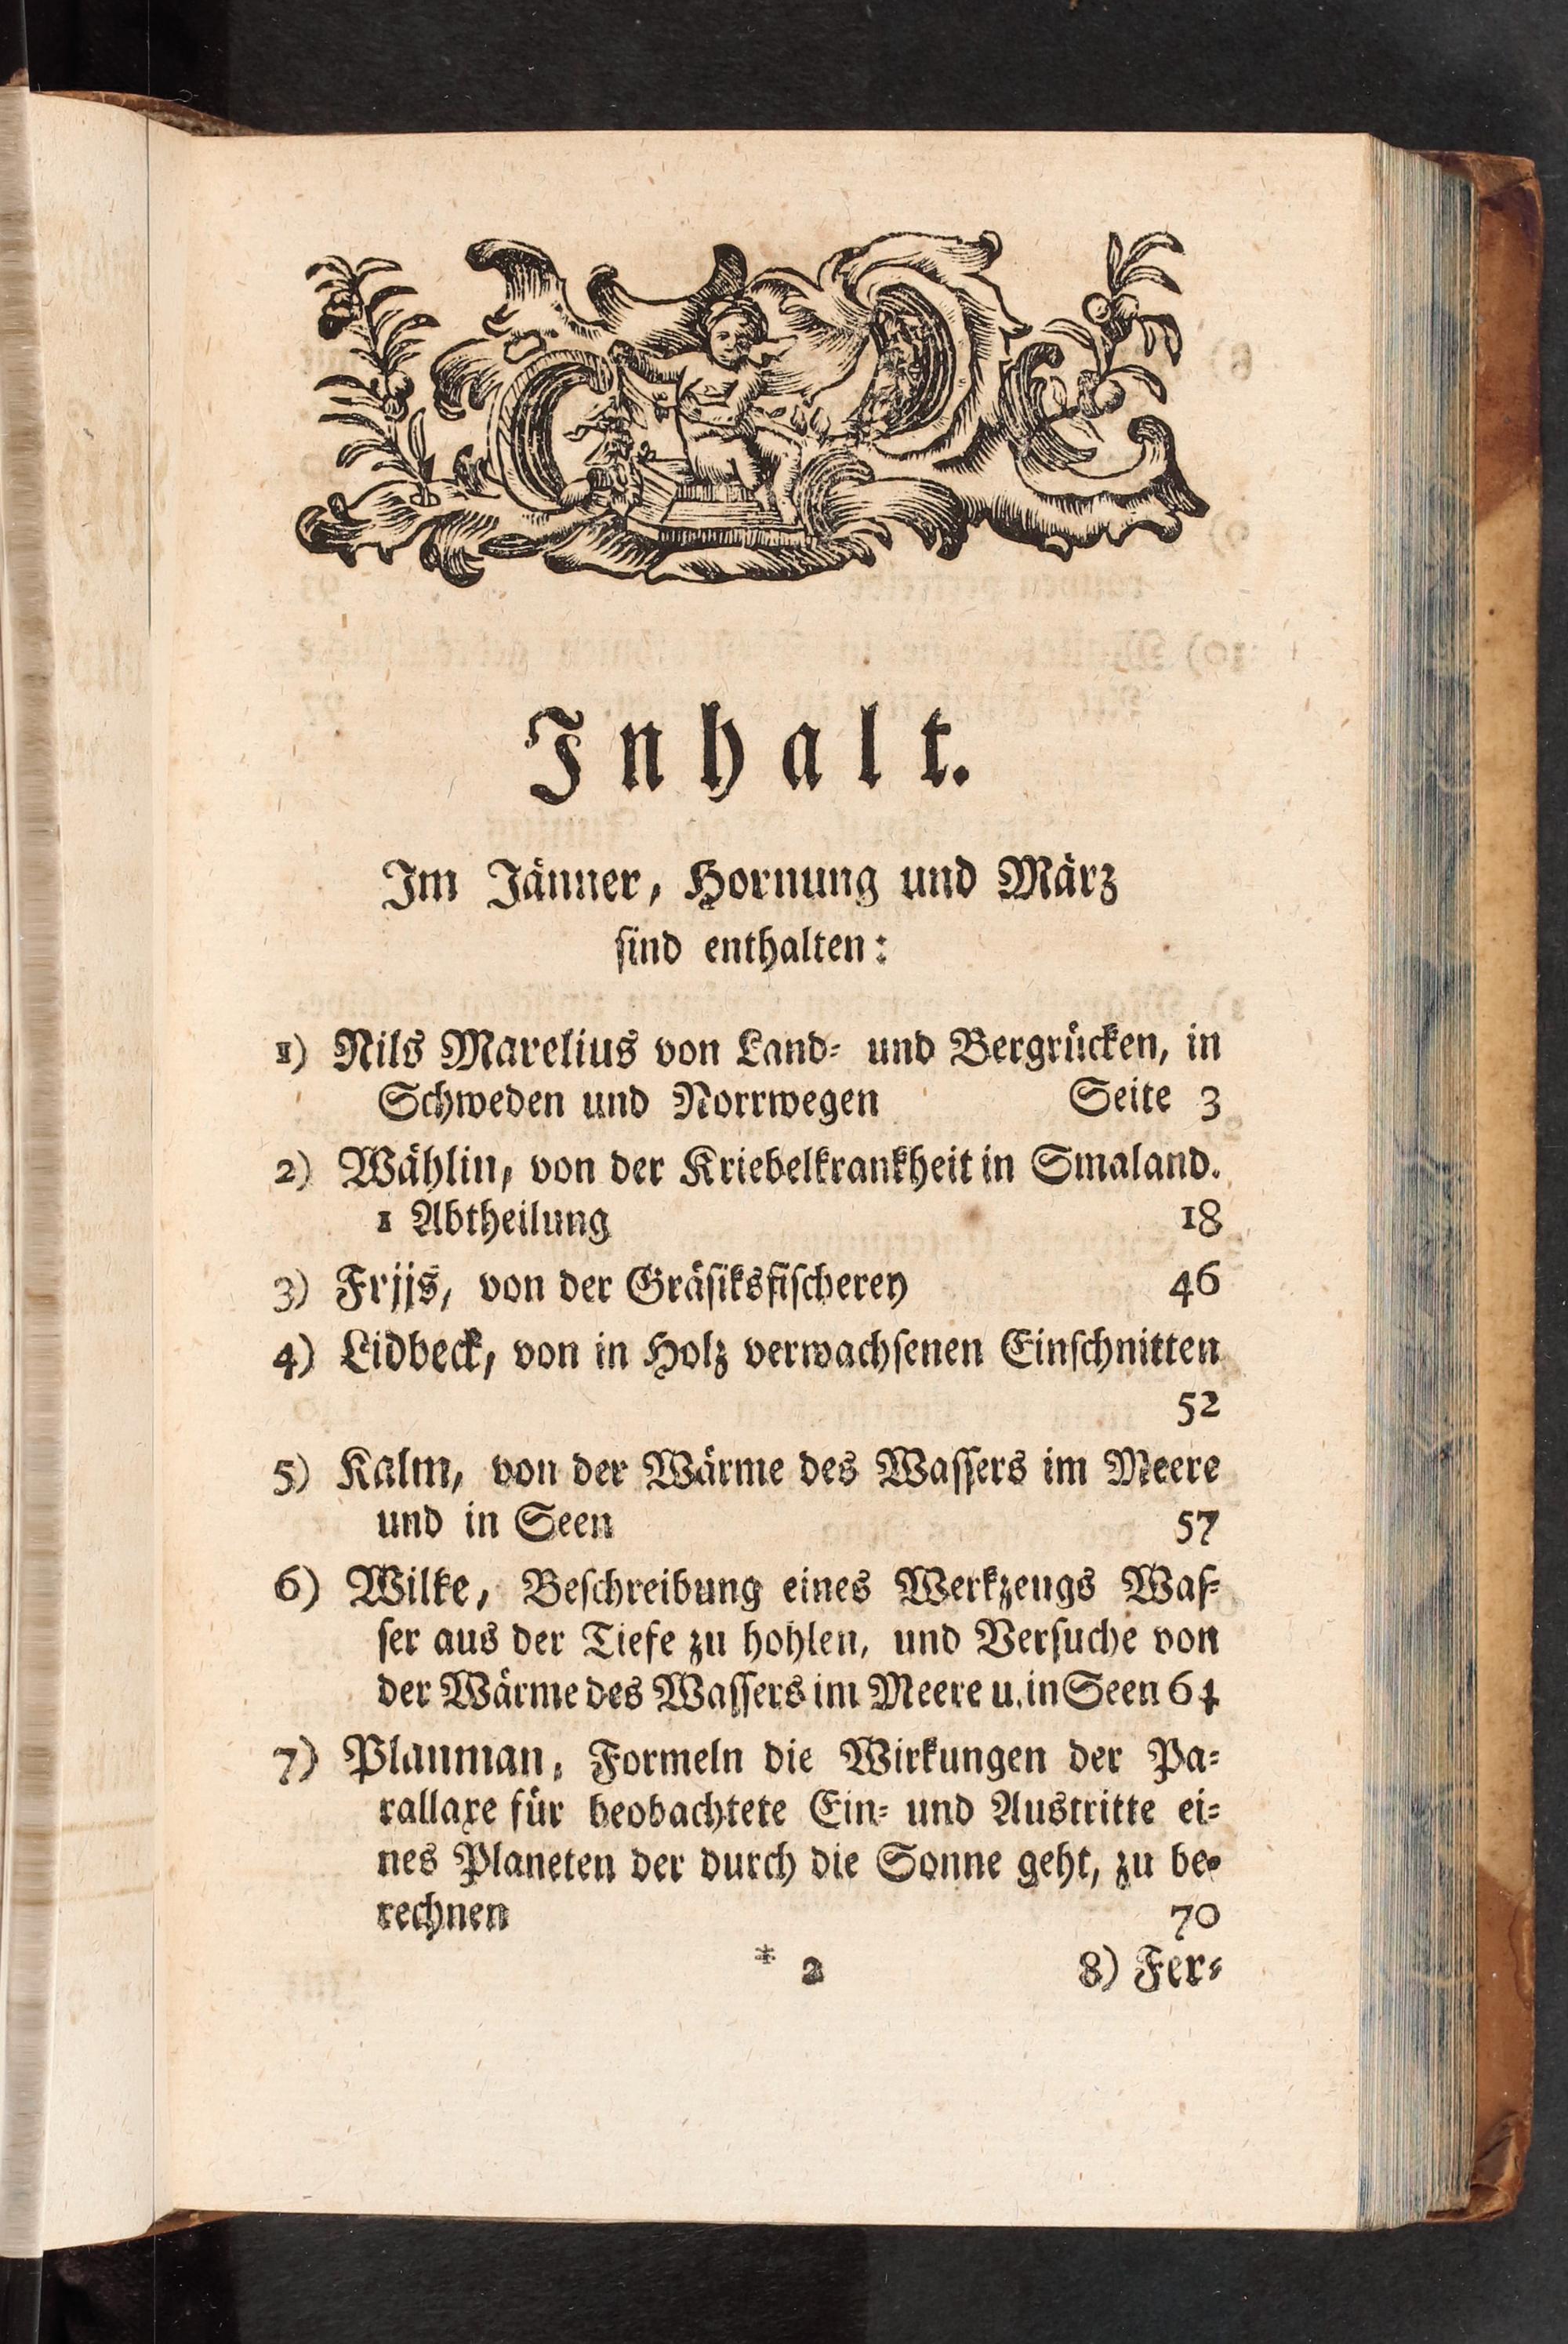 Inhalt.
Im Jänner, Hornung und März
sind enthalten:
1) Nils Marelius von Land- und Bergrücken, in
Schweden und Norrwegen Seite 3
2) Wählin, von der Kriebelkrankheit in Smaland.
1 Abtheilung 18
3) Frijs, von der Gräsiksfischerey 46
4) Lidbeck, von in Holz verwachsenen Einschnitten
52
5) Kalm, von der Wärme des Wassers im Meere
und in Seen 57
6) Wilke, Beschreibung eines Werkzeugs Was-
ser aus der Tiefe zu hohlen, und Versuche von
der Wärme des Wassers im Meere u. in Seen 64
7) Planman, Formeln die Wirkungen der Pa-
rallaxe für beobachtete Ein- und Austritte ei-
nes Planeten der durch die Sonne geht, zu be-
rechnen 70
* 2 8) Fer-